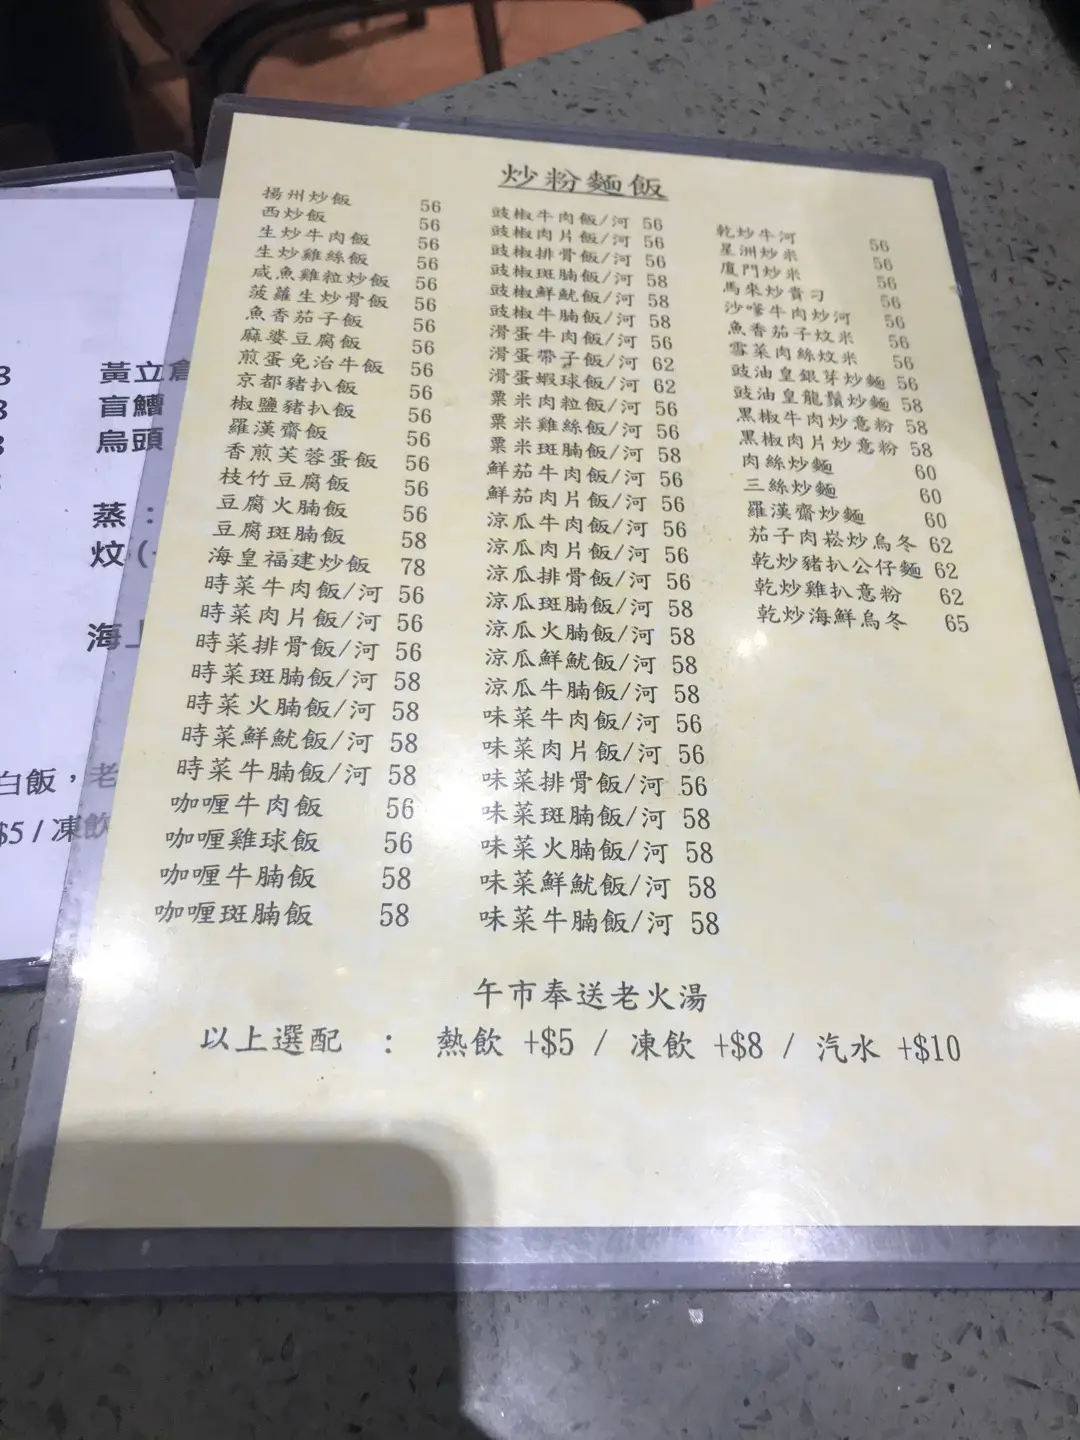 炒粉麵飯
揚州炒飯 56
西炒飯 56
生炒牛肉飯 56
生炒雞絲飯 56
咸魚雞粒炒飯 56
菠蘿生炒骨飯 56
魚香茄子飯 56
麻婆豆腐飯 56
煎蛋免治牛飯 56
京都豬扒飯 56
椒鹽豬扒飯 56
羅漢齋飯 56
香煎芙蓉蛋飯 56
枝竹豆腐飯 56
豆腐火腩飯 56
豆腐斑腩飯 58
海皇福建炒飯 78
時菜牛肉飯/河 56
時菜肉片飯/河 56
時菜排骨飯/河 56
時菜斑腩飯/河 58
時菜火腩飯/河 58
時菜鮮魷飯/河 58
時菜牛腩飯/河 58
咖喱牛肉飯 56
咖喱雞球飯 56
咖喱牛腩飯 58
咖喱斑腩飯 58
豉椒牛肉飯/河 56
豉椒肉片飯/河 56
豉椒排骨飯/河 56
豉椒斑腩飯/河 58
豉椒鮮魷飯/河 58
豉椒牛腩飯/河 58
滑蛋牛肉飯/河 56
滑蛋帶子飯/河 62
滑蛋蝦球飯/河 62
粟米肉粒飯/河 56
粟米雞絲飯/河 56
粟米斑腩飯/河 58
鮮茄牛肉飯/河 56
鮮茄肉片飯/河 56
涼瓜牛肉飯/河 56
涼瓜肉片飯/河 56
涼瓜排骨飯/河 56
涼瓜斑腩飯/河 58
涼瓜火腩飯/河 58
涼瓜鮮魷飯/河 58
涼瓜牛腩飯/河 58
味菜牛肉飯/河 56
味菜肉片飯/河 56
味菜排骨飯/河 56
味菜斑腩飯/河 58
味菜火腩飯/河 58
味菜鮮魷飯/河 58
味菜牛腩飯/河 58
乾炒牛河 56
星洲炒米 56
廈門炒米 56
馬來炒貴刁 56
沙嗲牛肉炒河 56
魚香茄子炆米 56
雪菜肉絲炆米 56
豉油皇銀芽炒麵 56
豉油皇龍鬚炒麵 58
黑椒牛肉炒意粉 58
黑椒肉片炒意粉 58
肉絲炒麵 60
三絲炒麵 60
羅漢齋炒麵 60
茄子肉崧炒烏冬 62
乾炒豬扒公仔麵 62
乾炒雞扒意粉 62
乾炒海鮮烏冬 65
午市奉送老火湯
以上選配 : 熱飲 +$5 / 凍飲 +$8 / 汽水 +$10
黃立倉
盲鰽
烏頭
蒸:
炆(
海上
白飯，老
$5 / 凍飲